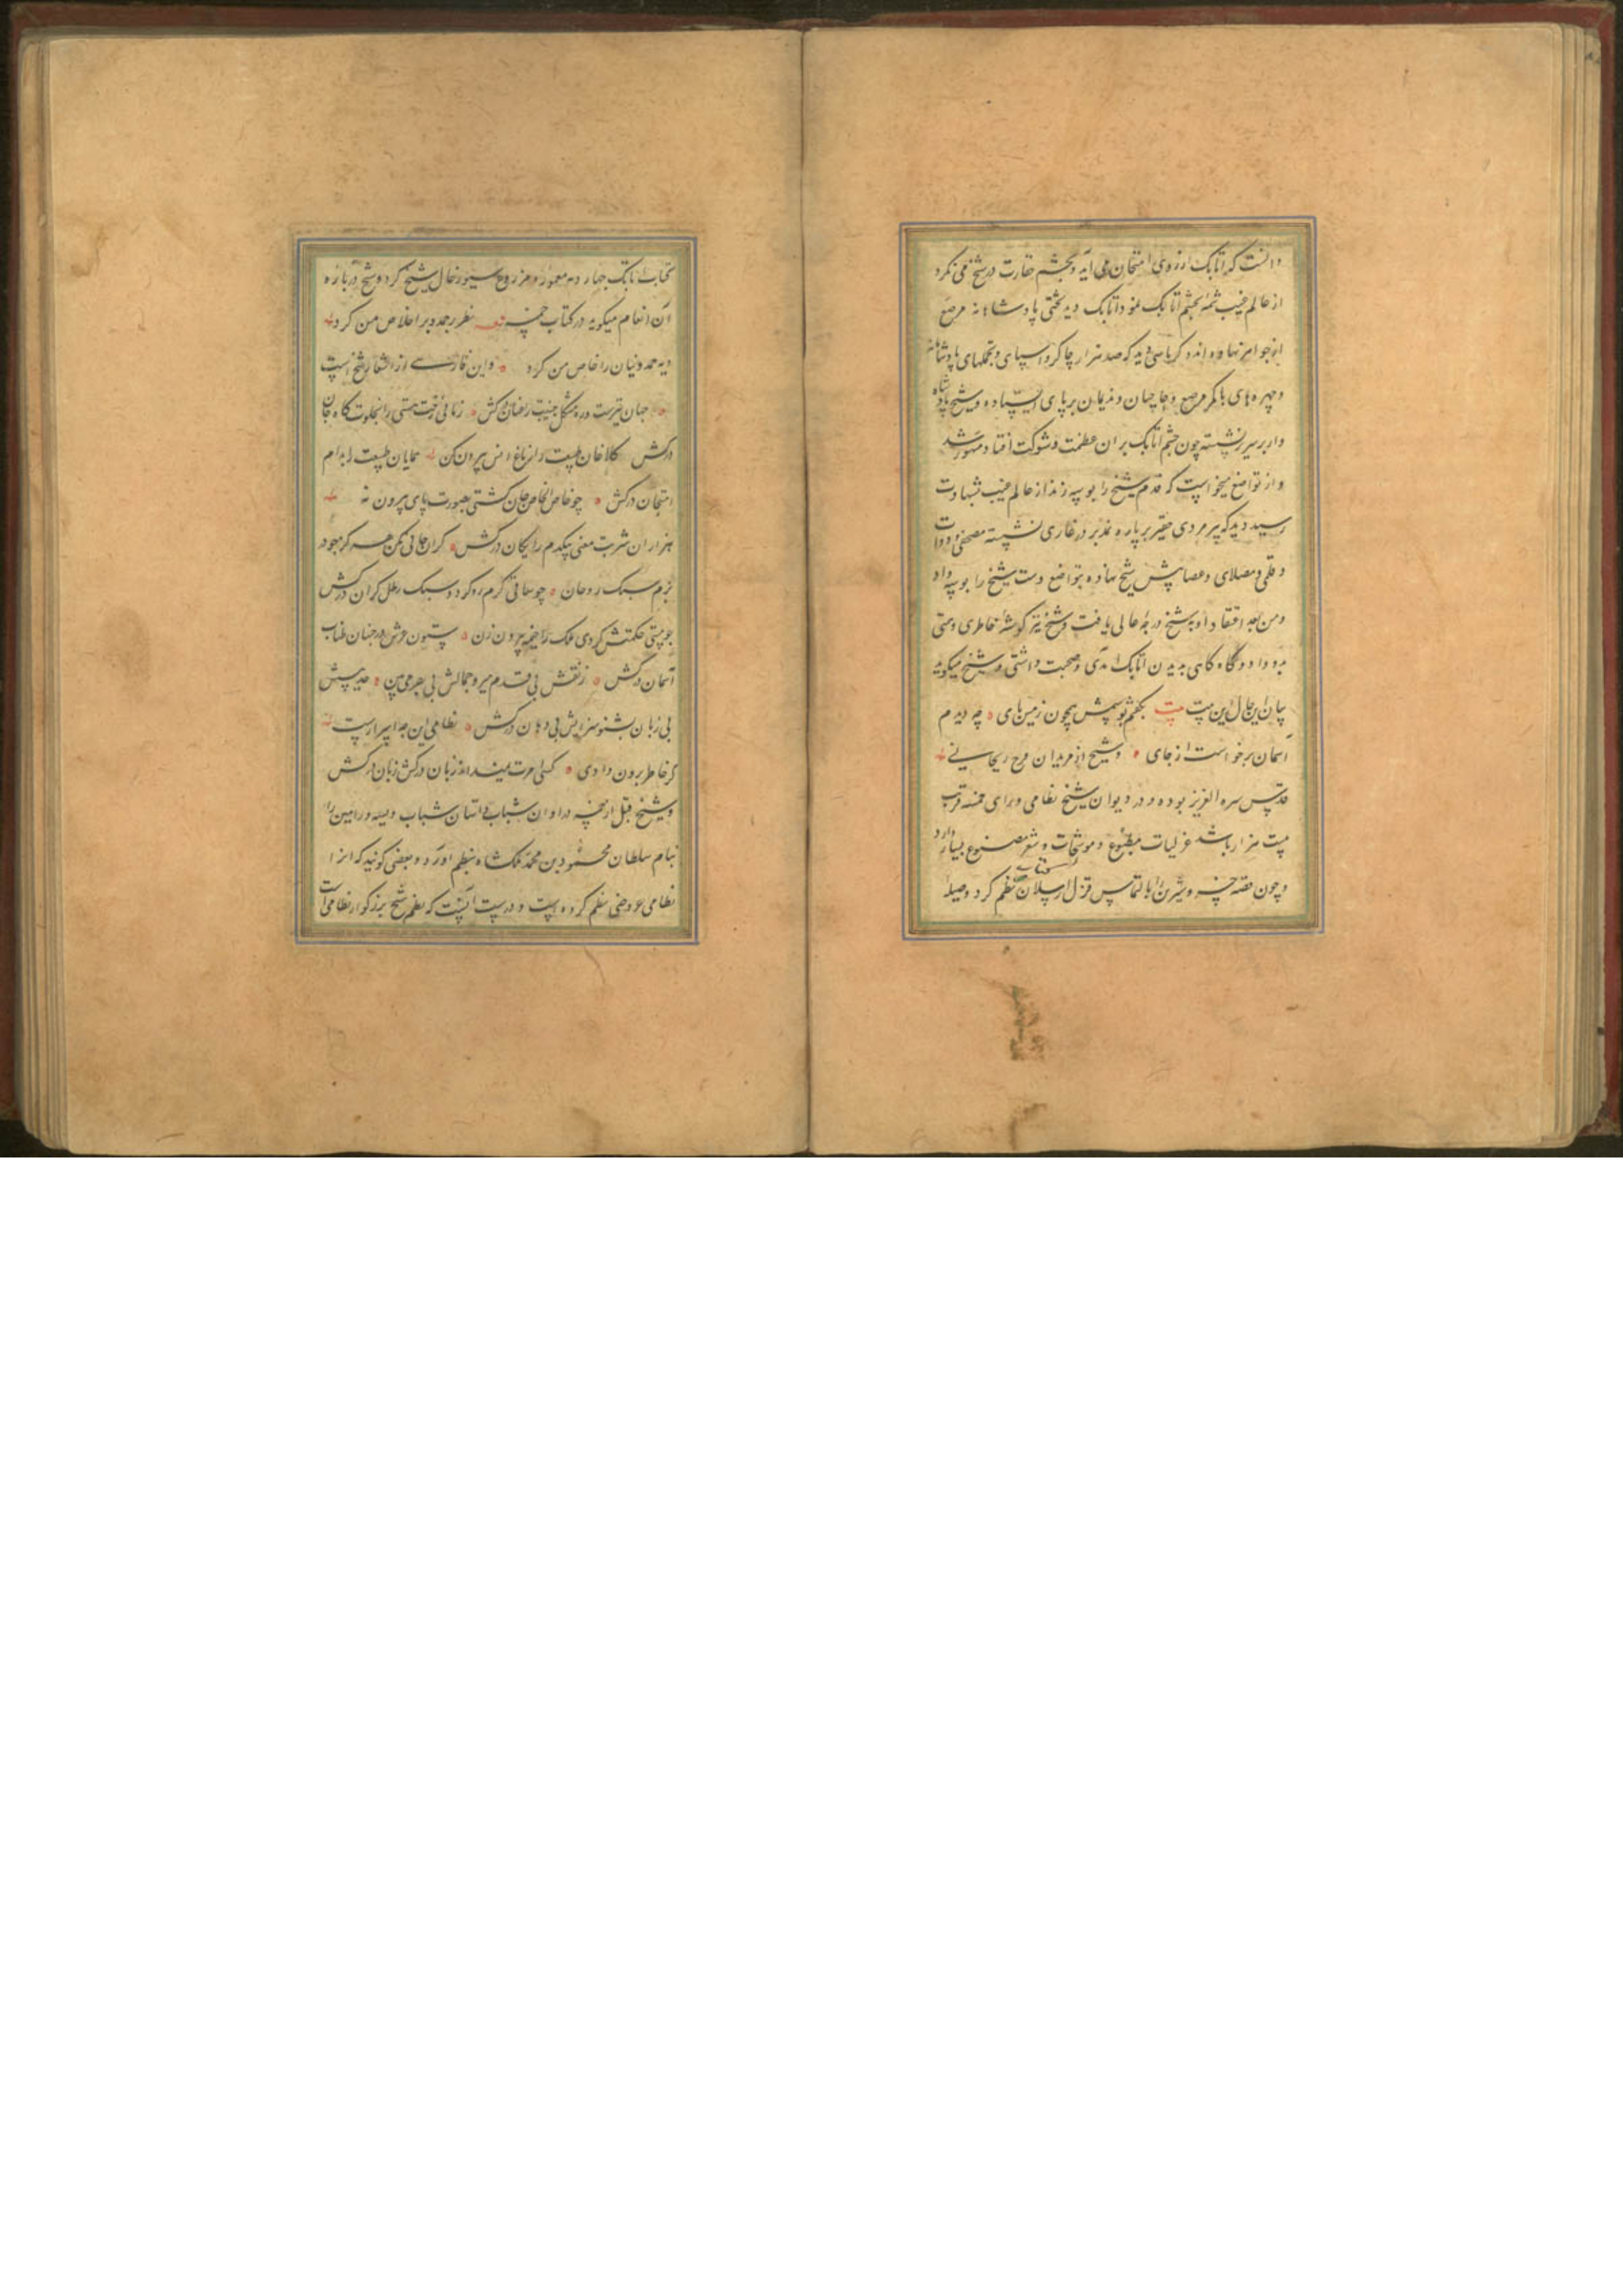 دانست که اتابک از روی امتحان می آید و بچشم حقارت در شیخ می نکرد
از عالم غیب شمهٔ بچشم اتابک نمود اتابک دید تختی پادشاهانه مرصع
از جواهر نهاده اند و کریاسی دید که صد هزار چاکر و سپاهی و تجملهای پادشاهانه
و چهره های باکمر مرصع و حاجبان و ندیمان بر پای ایستاده و شیخ پادشاه
وار بر سریر نشسته چون چشم اتابک بر آن عظمت و شوکت افتاد مبهوت شد
و از تواضع میخواست که قدم شیخ را بوسه زند از عالم غیب بشهادت
رسید دید که پیر مردی حقیر بر پاره نمد بر در غاری نشسته مصحفی و دوات
و قلمی و مصلای و عصا پیش شیخ نهاده بتواضع دست شیخ را بوسه داد
و من بعد اعتقاد او به شیخ درجهٔ عالی یافت و شیخ نیز کوشهٔ خاطری و همتی
بدو داد و کاه کاهی بدیدن اتابک آمدی و صحبت داشتی و شیخ میکوید
بیان این حال این بیت بیت بکفتم بوسمش همچون زمین پای چه دیدم
آسمان برخواست از جای و شیخ از مریدان فرج ریحانی
قدس سره العزیز بوده و در دیوان شیخ نظامی ورای خمسه قرب
بیست هزار باشد غزلیات مطبوع و موشحات و شعر مصنوع بسیار دارد
و چون قصه خسرو و شیرین را بالتماس قزل ارسلان نظم کرد وصیله
کتاب اتابک چهار ده معمور و مزروع سیورغال شیخ کرد و شیخ در باره
آن انعام میکوید در کتاب خمسه نظر بر حمد و بر اخلاص من کرد
دیه حمدونیان را خاص من کرد و این فارسی از اشعار شیخ است
جهان تیرست و ره مشکل جنیبت را عنان درکش زمانی رخت هستی را بخلوت کاه جان
درکش کلاغان طبیعت را ز باغ انس بیرون کن همایان طبیعت را بدام
امتحان درکش چو خاص الخاص جان کشتی بصورت پای بیرون نه
هزاران شربت معنی بیکدم رایکان درکش کران جانی مکن هرکز مجو در
بزم سبک روحان چو ساقی کرم رو کردد سبک رطل کران درکش
چو مستی حکمتش کردی ملک را خیمه بیرون زن ستون عرش در جنبان طناب
آسمان درکش ز نقش بی قدم میرو جمالش بی بصر می بین حدیثش
بی زبان بشنو شرابش بی دهان درکش نظامی این چه اسرارست
کز خاطر برون دادی کسی رمزت نمیداند زبان درکش زبان درکش
و شیخ قبل از خمسه در اوان شباب داستان ویسه و رامین را
بنام سلطان محمود بن محمد ملکشاه بنظم آورده و بعضی کویند که آنرا
نظامی عروضی نظم کرده است و درست آنست که نظم شیخ بزرکوار نظامی است